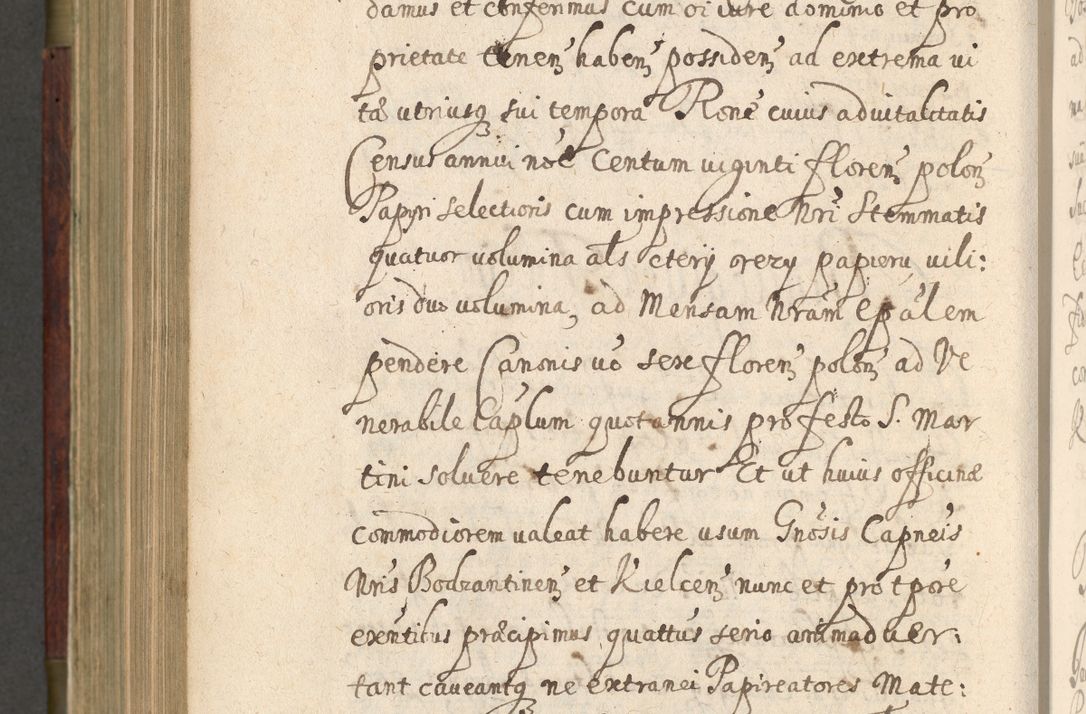 damus et conferimus cum oi iure dominio et pro
prietate tenen̄ haben̄ possiden̄ ad extrema vi
tæ utriusq sui tempora Rone cuius advitalitatis
Census annui noe Centum viginti floren̄ polon̄
Papyri selectioris cum impressione Nri Stemmatis
quatuor volumina als cztery xrezy papieru vili:
oris duo volumina, ad Mensam Nram Epalem
pendere Canonis vo sex floren̄ polon̄ ad Ve
nerabile Caplum quotannis pro festo S. Mar
tini solvere tenebuntur Et ut huius officinæ
commodiorem valeat habere usum Gnosis Capneis
Nris Bodzantinen̄ et Kielcen̄ nunc et pro tpore
exentibus præcipimus quattus serio animadver:
tant caveantq ne extranei Papireatores Mate: